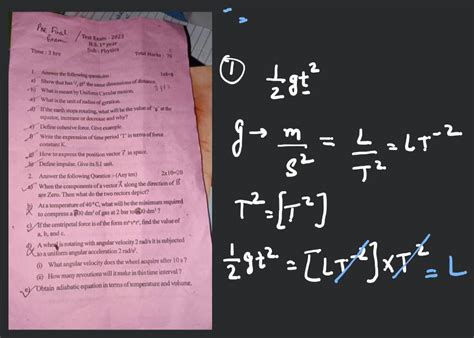 Pre Final
Exam
Test Exam - 2023
H.S. 1st year
Sub: Physics
Time: 3 hrs
Total Marks: 70
1. Answer the following questions
1x8=8
a) Show that has ½ gt² the same dimensions of distance.
b) What is meant by Uniform Circular motion.
c) What is the unit of radius of gyration.
d) If the earth stops rotating, what will be the value of 'g' at the
equator, increase or decrease and why?
e) Define cohesive force. Give example.
f) Write the expression of time period 'T' in terms of force
constant K.
g) How to express the position vector r in space.
h) Define impulse. Give its S.I unit.
2. Answer the following Question :-(Any ten)
2x10=20
a) When the components of a vector A along the direction of B
are Zero. Then what do the two vectors depict?
b) At a temperature of 40°C, what will be the minimum required
to compress a 500 dm³ of gas at 2 bar to dm³ ?
c) If the centripetal force is of the form find the value of
a, b, and c.
d) A wheel is rotating with angular velocity 2 rad/s it is subjected
to a uniform angular acceleration 2 rad/s².
(i) What angular velocity does the wheel acquire after 10 s ?
(ii) How many revoutions will it make in this time interval ?
e) Obtain adiabatic equation in terms of temperature and volume,
① ½ gt²
g → m/s² = L/T² = LT⁻²
T² = [T²]
½ gt² = [LT⁻²] × T² = L